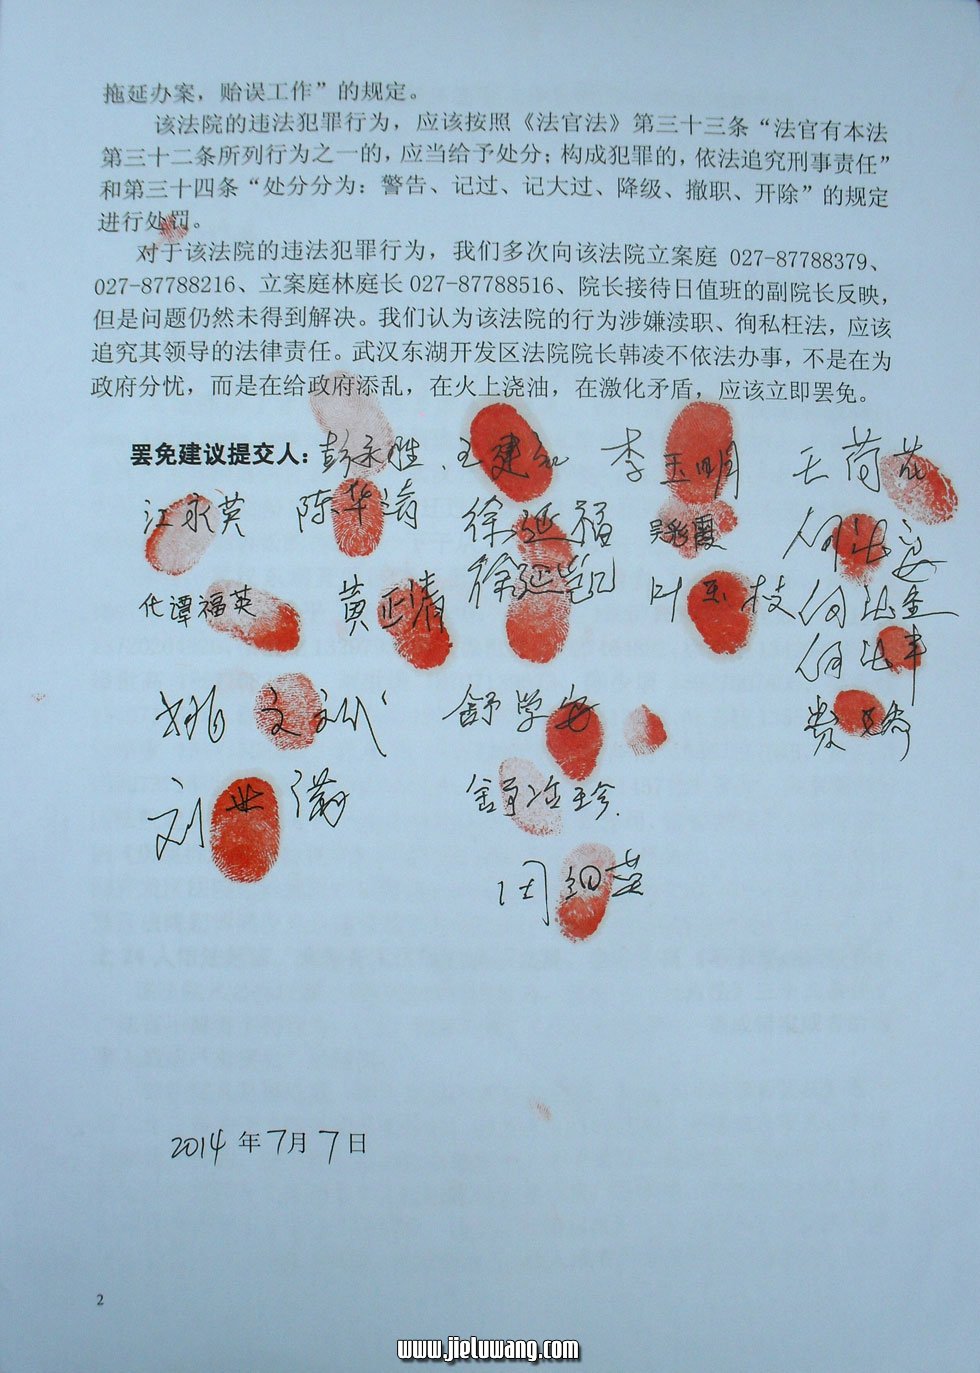 拖延办案，贻误工作”的规定。
该法院的违法犯罪行为，应该按照《法官法》第三十三条“法官有本法
第三十二条所列行为之一的，应当给予处分；构成犯罪的，依法追究刑事责任”
和第三十四条“处分分为：警告、记过、记大过、降级、撤职、开除”的规定
进行处罚。
对于该法院的违法犯罪行为，我们多次向该法院立案庭 027-87788379、
027-87788216、立案庭林庭长 027-87788516、院长接待日值班的副院长反映，
但是问题仍然未得到解决。我们认为该法院的行为涉嫌渎职、徇私枉法，应该
追究其领导的法律责任。武汉东湖开发区法院院长韩凌不依法办事，不是在为
政府分忧，而是在给政府添乱，在火上浇油，在激化矛盾，应该立即罢免。
罢免建议提交人：彭永胜、王建 李玉明 王荷花
江永英 陈华清 徐延福 吴彩霞 何
代谭福英 黄正清 徐延凯 叶玉枝 何
何
文 舒学安
刘业 舒
周细英
2014年7月7日
2
www.jieluwang.com